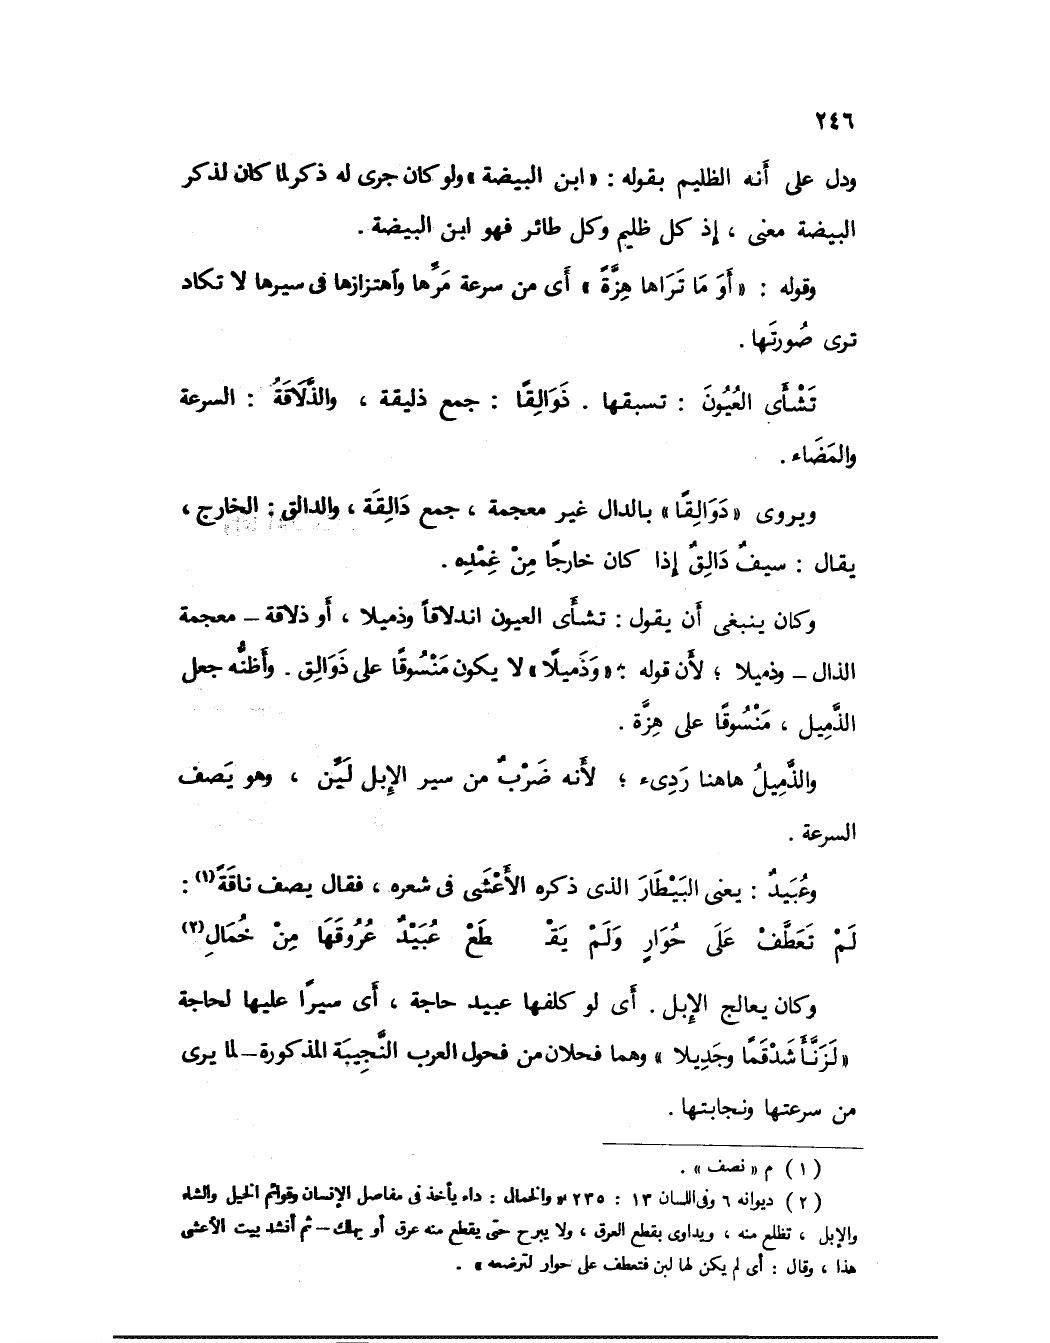 ٢٤٦
ودل على أَنه الظليم بقوله : «ابن البيضة» ولو كان جرى له ذكر لما كان لذكر
البيضة معنى ، إذ كل ظليم وكل طائر فهو ابن البيضة .
وقوله : «أَوَ مَا تَرَاها هِزَّةً » أَى من سرعة مَرِّها وٱهتزازها فى سيرها لا تكاد
ترى صُورتَها .
تَشْأَى العُيُونَ : تسبقها . ذَوَالِقًا : جمع ذليقة ، والذَّلَاقَةُ : السرعة
والمَضَاء .
ويروى «دَوَالِقًا» بالدال غير معجمة ، جمع دَالِقَة ، والدالق : الخارج ،
يقال : سيفٌ دَالِقٌ إذا كان خارجًا مِنْ غِمْدِه .
وكان ينبغى أَن يقول : تشأَى العيون اندلاقاً وذميلا ، أَو ذلاقة – معجمة
الذال – وذميلا ؛ لأَن قوله : «وَذَميلًا» لا يكون مَنْسُوقًا على ذَوَالِق . وأَظنُّه جعل
الذَّمِيل ، مَنْسُوقًا على هِزَّة .
والذَّمِيلُ هاهنا رَدِىء ؛ لأَنه ضَرْبٌ من سير الإِبل لَيِّن ، وهو يَصف
السرعة .
وعُبَيدٌ : يعنى البَيْطَارَ الذى ذكره الأَعْشَى فى شعره ، فقال يصف ناقَةً(١) :
لَمْ تَعَطَّفْ عَلَى حُوَارٍ وَلَمْ يَقْـ طَعْ عُبَيْدٌ عُرُوقَهَا مِنْ خُمَالِ(٢)
وكان يعالج الإِبل . أَى لو كلفها عبيد حاجة ، أَى سيرًا عليها لحاجة
«لَزَنَّأَ شَدْقَمًا وجَدِيلا » وهما فحلان من فحول العرب النَّجِيبَة المذكورة – لما يرى
من سرعتها ونجابتها .
(١) م «نصف» .
(٢) ديوانه ٦ وفى اللسان ١٣ : ٢٣٥ «والخمال : داء يأخذ فى مفاصل الإنسان وقوائم الخيل والشاء
والإبل ، تظلع منه ، ويداوى بقطع العرق ، ولا يبرح حتى يقطع منه عرق أو يهلك – ثم أنشد بيت الأعشى
هذا ، وقال : أى لم يكن لها لبن فتعطف على حوار لترضعه » .